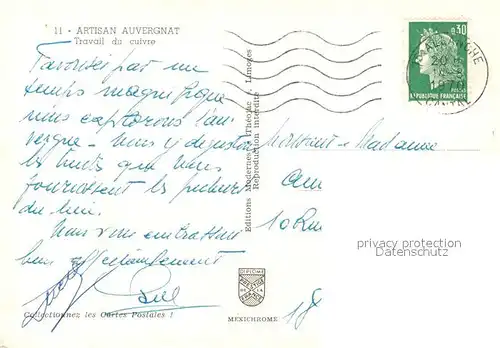 11 - ARTISAN AUVERGNAT
Travail du cuivre
Favorisés par un
temps magnifique
nous capturons l'au
vergne - Nous y dégustons
les truites que nous
fournissent les pêcheurs
du lieu.
Nous vous embrassons
bien affectueusement
Collectionnez les Cartes Postales !
Editions Modernes Théojac - Limoges
Reproduction interdite
DIPLOME
PRESTIGE
FRANCE
MEXICHROME
0,30
REPUBLIQUE FRANCAISE
20
CANTAL
Monsieur - Madame
10 Rue
18
privacy protection
Datenschutz